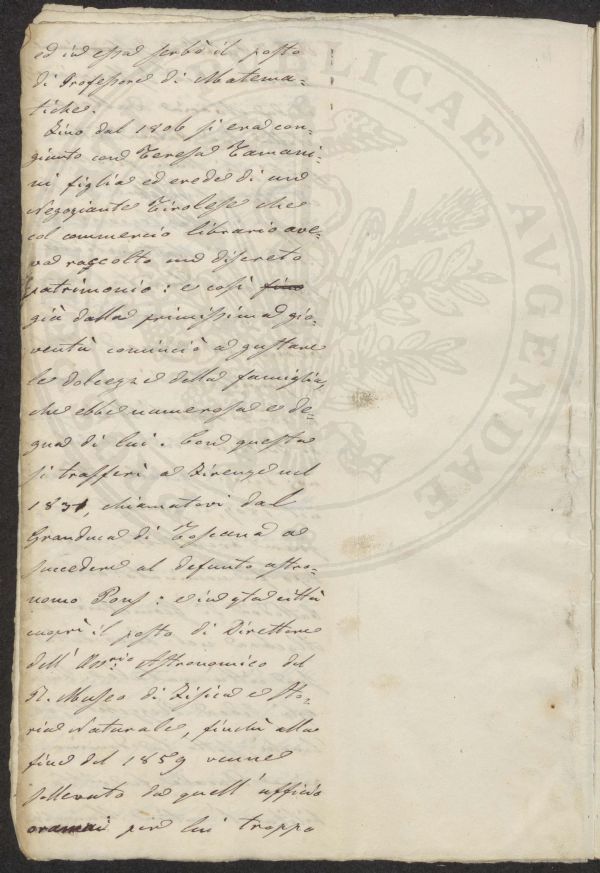 ed in essa serbò il posto
di Professore di Matema=
tiche.
Fino dal 1806 si era con=
giunto con Teresa Tamani=
ni figlia ed erede di un
Negoziante Tirolese che
col commercio librario ave=
va raccolto un discreto
patrimonio: e così fino
già dalla primissima gio=
ventù cominciò a gustare
le dolcezze della famiglia,
che ebbe numerosa e de=
gna di lui. Con questa
si trasferì a Firenze nel
1831, chiamatovi dal
Granduca di Toscana a
succedere al defunto astro=
nomo Pons: e in qta città
coprì il posto di Direttore
dell' Oss.rio Astronomico del
R. Museo di Fisica e Sto=
ria Naturale, finchè alla
fine del 1859 venne
sollevato da quell' ufficio
oramai per lui troppo
PUBLICAE AVGENDAE